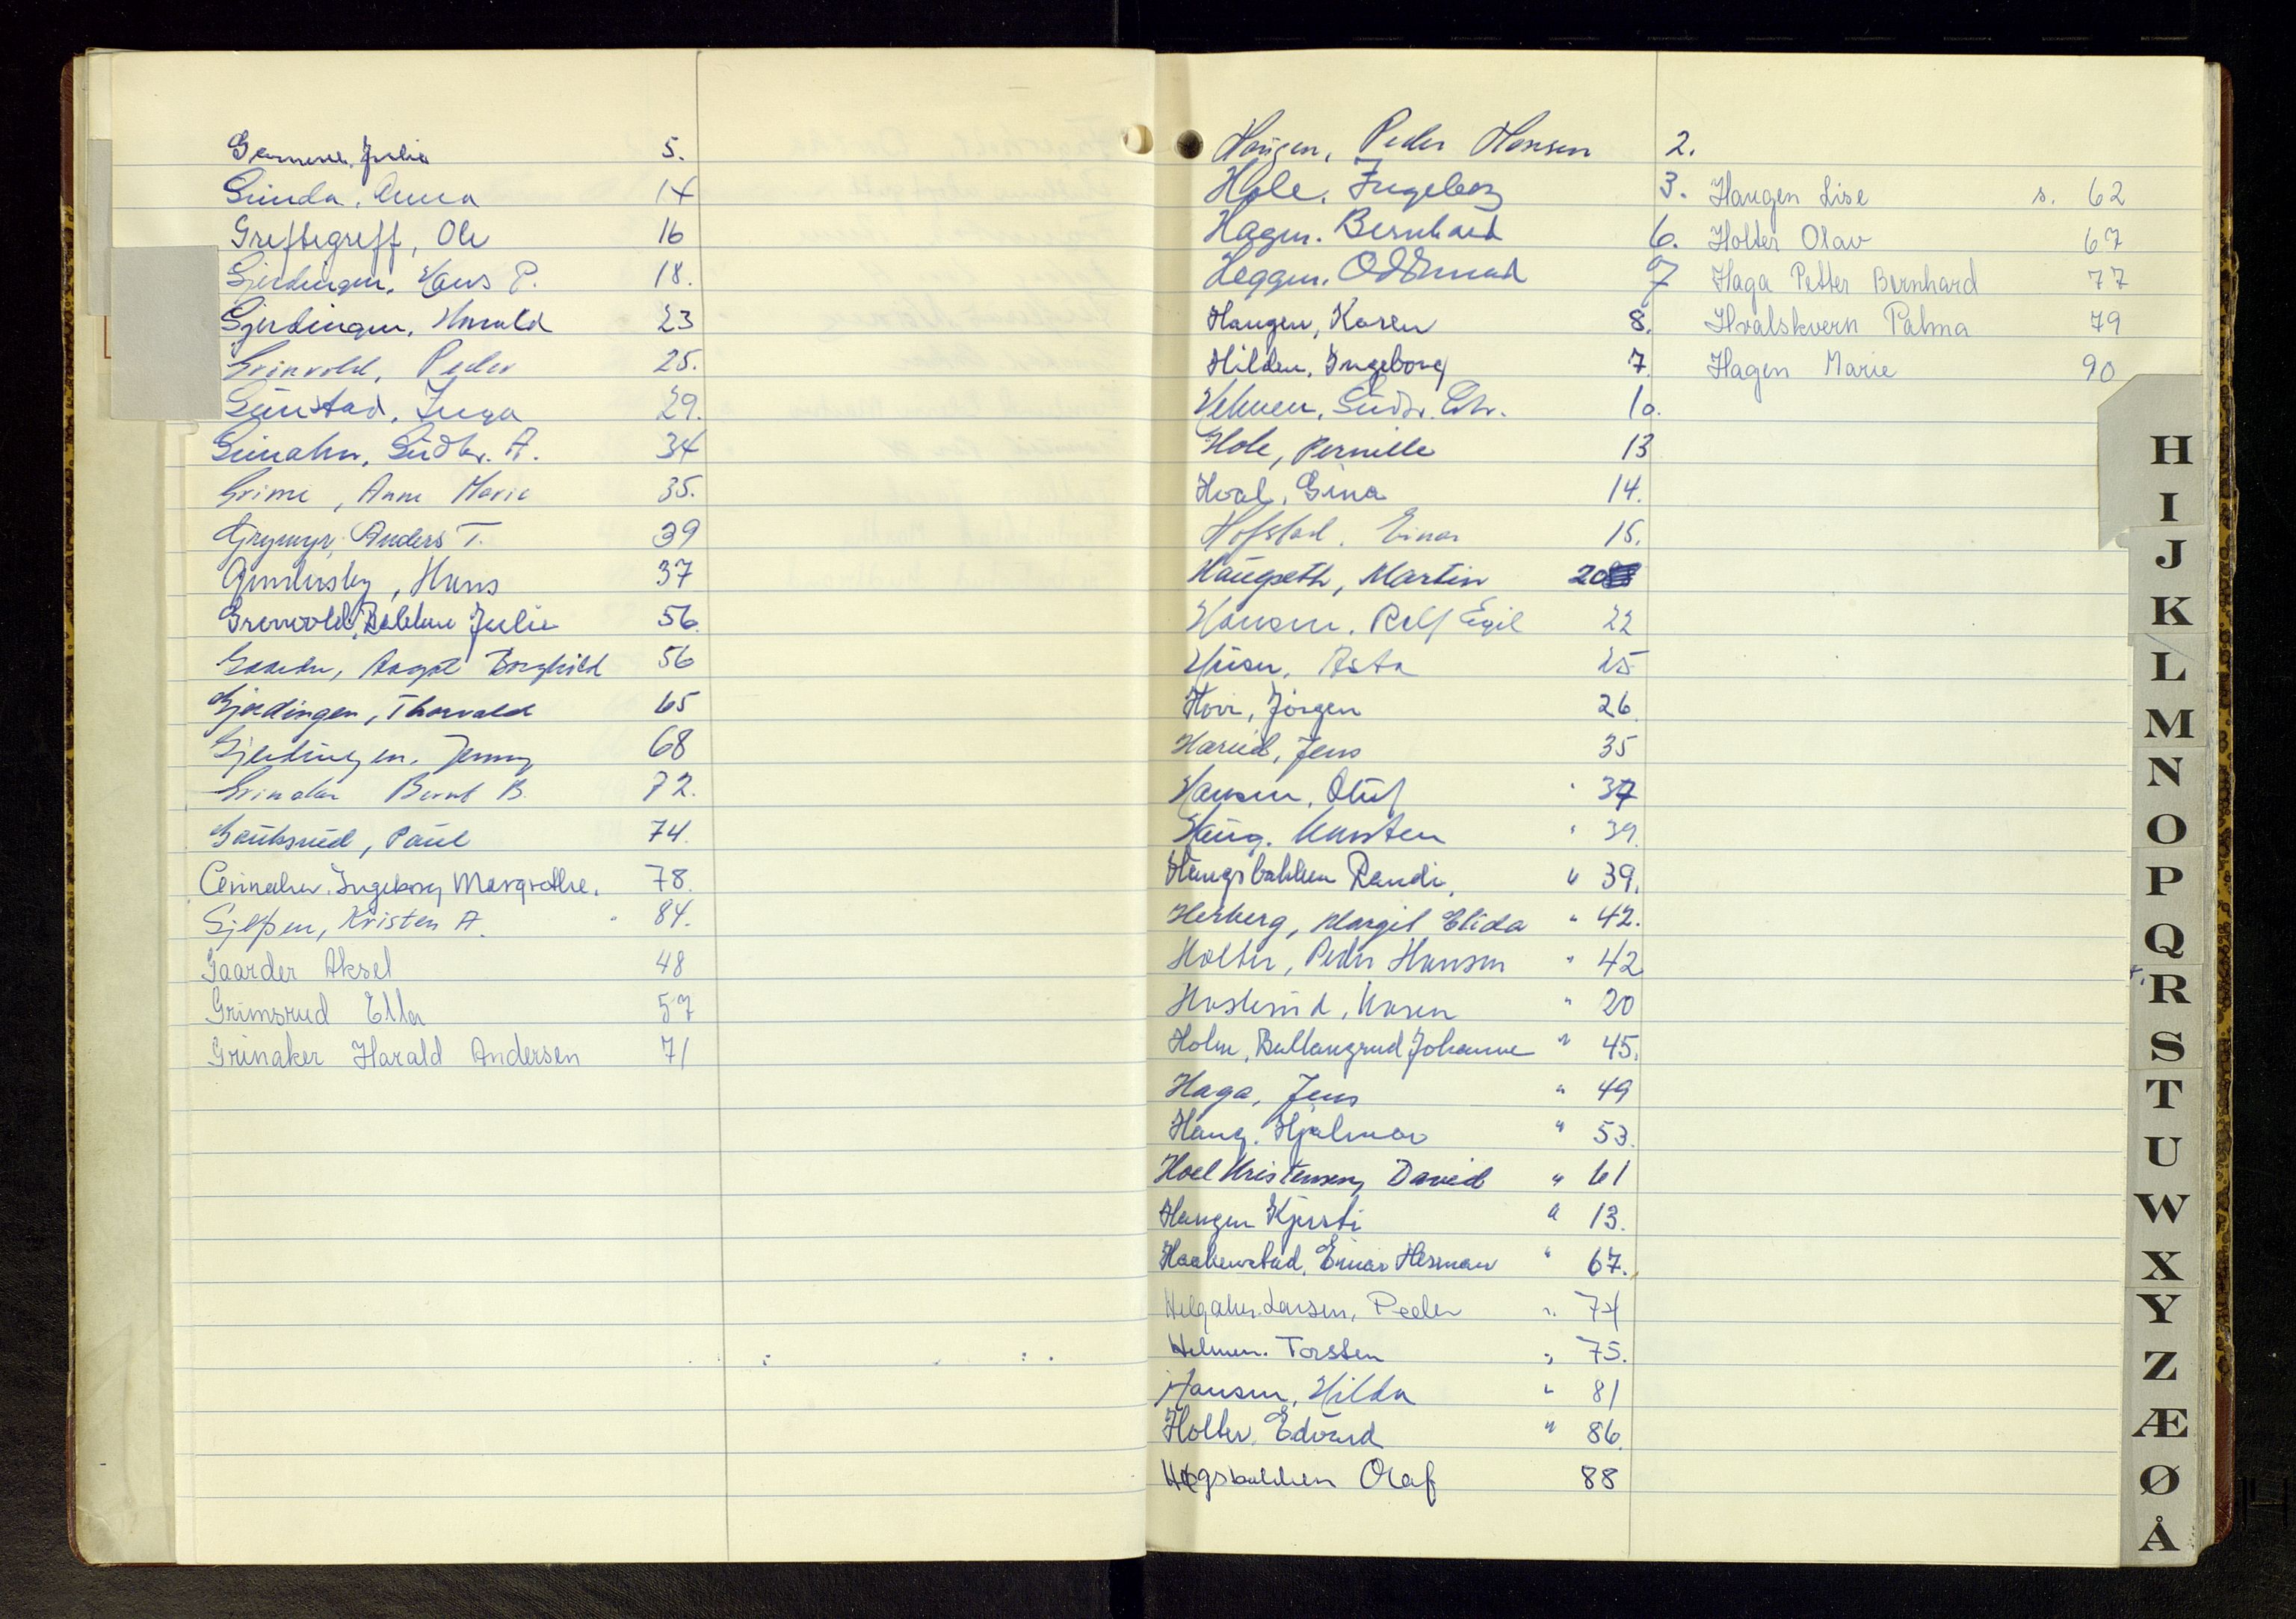 Julie 5.
Anna 14
Greftegreff, Ole 16
Gjerdingen, Hans P. 18.
Gjerdingen, Harald 23
Grinvold, Peder 25.
Inga 29.
Gudbr. A. 34
Grime, Anne Marie 35.
Grymyr, Anders T. 39
Hans 37
Grinvold, Bakken Julie 56.
Borghild 56
Gjerdingen, Thorvald 65
Gjerdingen, Jenny 68
Grindar Bernt B. 72.
Gauksrud, Paul 74.
Ingeborg Margrethe. 78.
Kristen A. 84.
Gaarder Aksel 48
Grimsrud Ella 57
Grinaker Harald Andersen 71
Haugen, Peder Hansen 2.
Hole, Ingeborg 3.
Hagen. Bernhard 6.
Heggen. Oddmund 7
Haugen, Karen 8.
Hilden, Ingeborg 7.
Helmen, Gudbr. Chr. 10.
Hole, Pernille 13
Hval, Gina 14.
Hofstad, Einar 15.
Haugseth, Martin 20
Hansen, Rolf Egil 22
Asta 25
Hovi, Jørgen 26.
Harud, Jens 35
Hansen, Oluf " 37
Haug. Karsten " 39.
Haugsbakken Randi, " 39.
Herberg, Margit Elida " 42.
Holter, Peder Hansen " 42
Haslerud, Karen " 20
Holm, Bullangrud Johanne " 45.
Haga, Jens " 49
Haug. Hjalmar " 53.
Hoel Kristensen, David " 61
Haugen Kjersti " 13.
Haakenstad, Einar Herman " 67.
Helgaker. Larsen, Peder " 74
Helmen. Torsten " 75.
Hansen, Hilda " 81
Holter, Edvard " 86.
Olaf 88
Haugen Lise s. 62
Holter Olav 67
Haga Petter Bernhard 77
Hvalskvern Palma 79
Hagen Marie 90
H
I
J
K
L
M
N
O
P
Q
R
S
T
U
W
X
Y
Z
Æ
Ø
Å